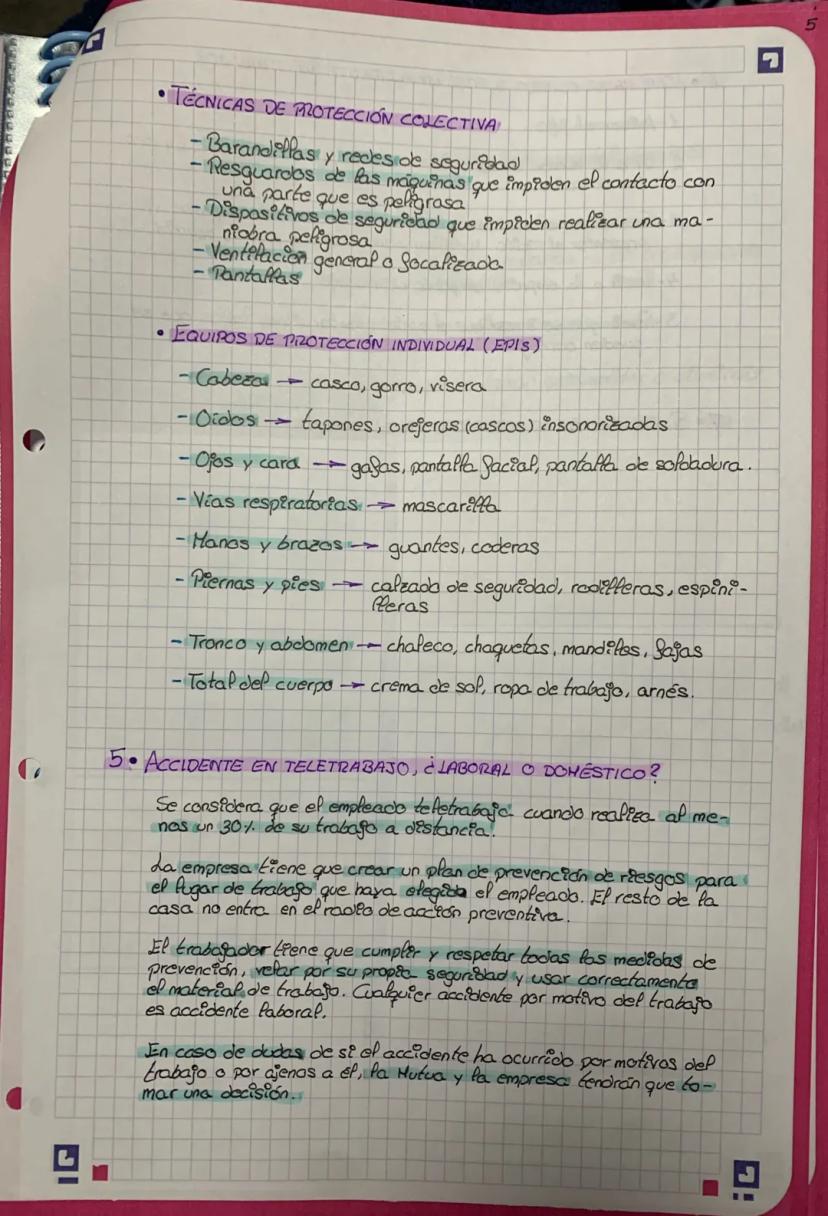 5
• TÉCNICAS DE PROTECCIÓN COLECTIVA
- Barandillas y redes de seguridad
- Resguardos de las máquinas que impiden el contacto con
una parte que es peligrosa
- Dispositivos de seguridad que impiden realizar una ma-
niobra peligrosa
- Ventilación general o focalizada
- Pantallas
• EQUIPOS DE PROTECCIÓN INDIVIDUAL (EPIS)
- Cabeza → casco, gorro, visera
- Oídos → tapones, orejeras (cascos) insonorizadas
- Ojos y cara → gafas, pantalla facial, pantalla de soldadura.
- Vías respiratorias → mascarilla
- Manos y brazos → guantes, coderas
- Piernas y pies → calzado de seguridad, rodilleras, espini-
lleras
- Tronco y abdomen → chaleco, chaquetas, mandiles, fajas
- Total del cuerpo → crema de sol, ropa de trabajo, arnés.
5. ACCIDENTE EN TELETRABAJO, ¿LABORAL O DOMÉSTICO?
Se considera que el empleado teletrabaja cuando realiza al me-
nos un 30% de su trabajo a distancia.
La empresa tiene que crear un plan de prevención de riesgos para
el lugar de trabajo que haya elegido el empleado. El resto de la
casa no entra en el radio de acción preventiva.
El trabajador tiene que cumplir y respetar todas las medidas de
prevención, velar por su propia seguridad y usar correctamente
el material de trabajo. Cualquier accidente por motivo del trabajo
es accidente laboral.
En caso de dudas de si el accidente ha ocurrido por motivos del
trabajo o por ajenos a él, la Mutua y la empresa tendrán que to-
mar una decisión.